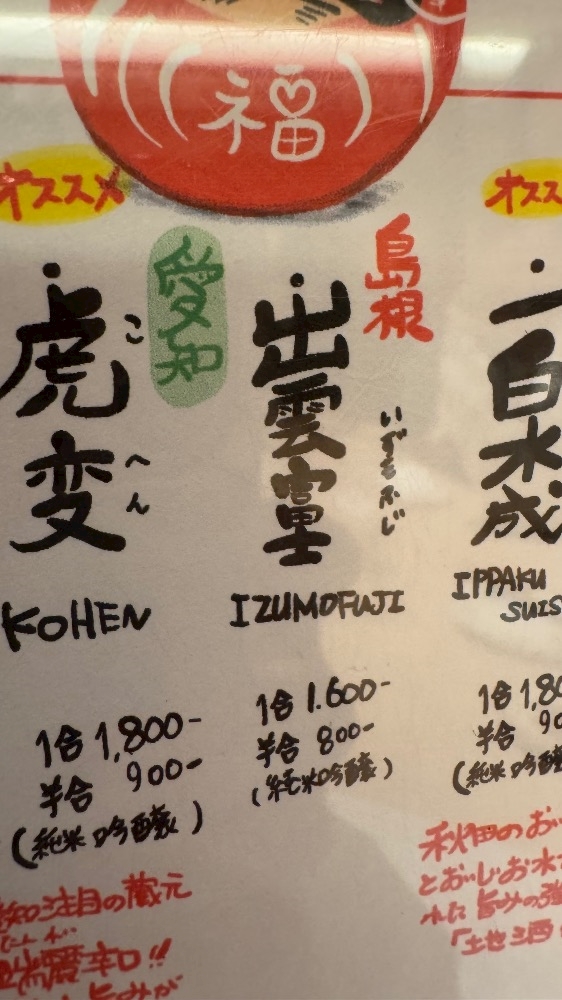 福
オススメ
オスス
虎変
こ
へん
愛知
KOHEN
1合 1,800-
半合 900-
(純米吟醸)
注目の蔵元
辛口!!
旨みが
出雲富士
いずもふじ
島根
IZUMOFUJI
1合 1.600-
半合 800-
(純米吟醸)
一白水成
IPPAKU
SUIS
1合 1,80
半合 90
(純米吟醸
秋田のおい
とおいしお水
れた旨みの強
「土地酒